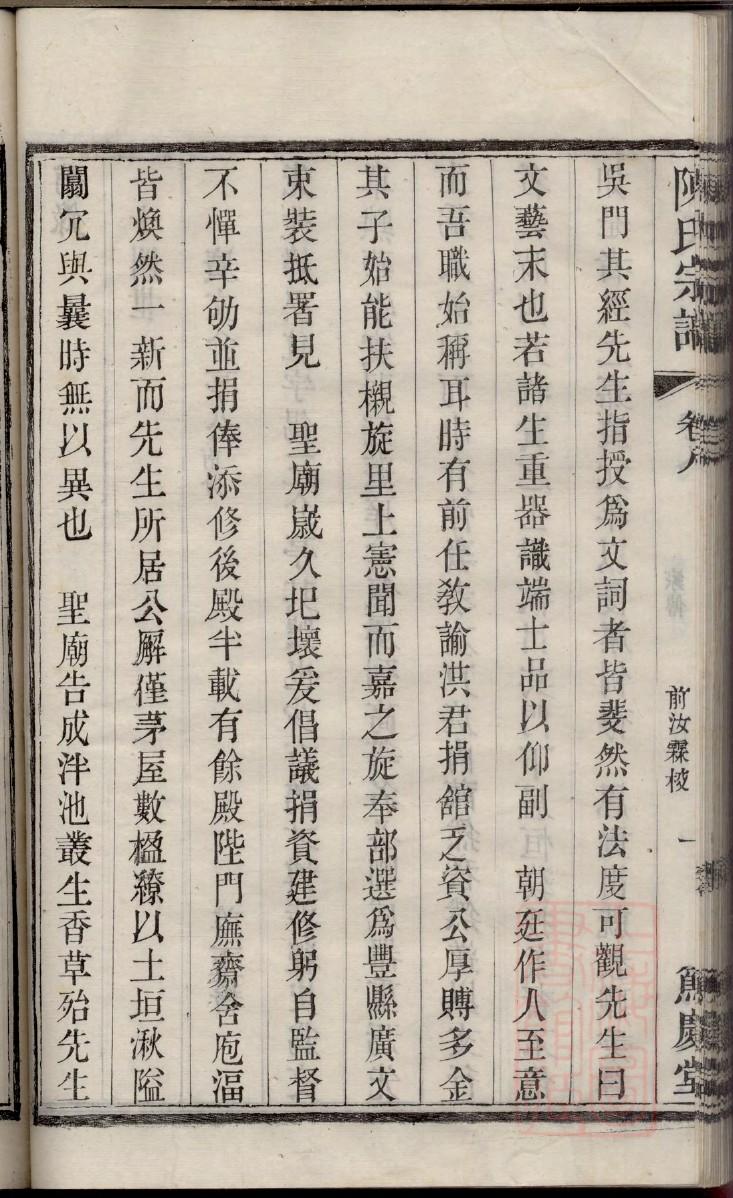 陳氏宗譜 卷八 前汝霖校 一 篤慶堂
吳門其經先生指授爲文詞者皆斐然有法度可觀先生曰
文藝末也若諸生重器識端士品以仰副 朝廷作人至意
而吾職始稱耳時有前任敎諭洪君捐舘乏資公厚賻多金
其子始能扶櫬旋里上憲聞而嘉之旋奉部選爲豐縣廣文
束裝抵署見 聖廟歲久圯壞爰倡議捐資建修躬自監督
不憚辛劬並捐俸添修後殿半載有餘殿陛門廡齋舍庖湢
皆煥然一新而先生所居公廨僅茅屋數楹繚以土垣湫隘
闒冗與曩時無以異也 聖廟告成泮池叢生香草殆先生